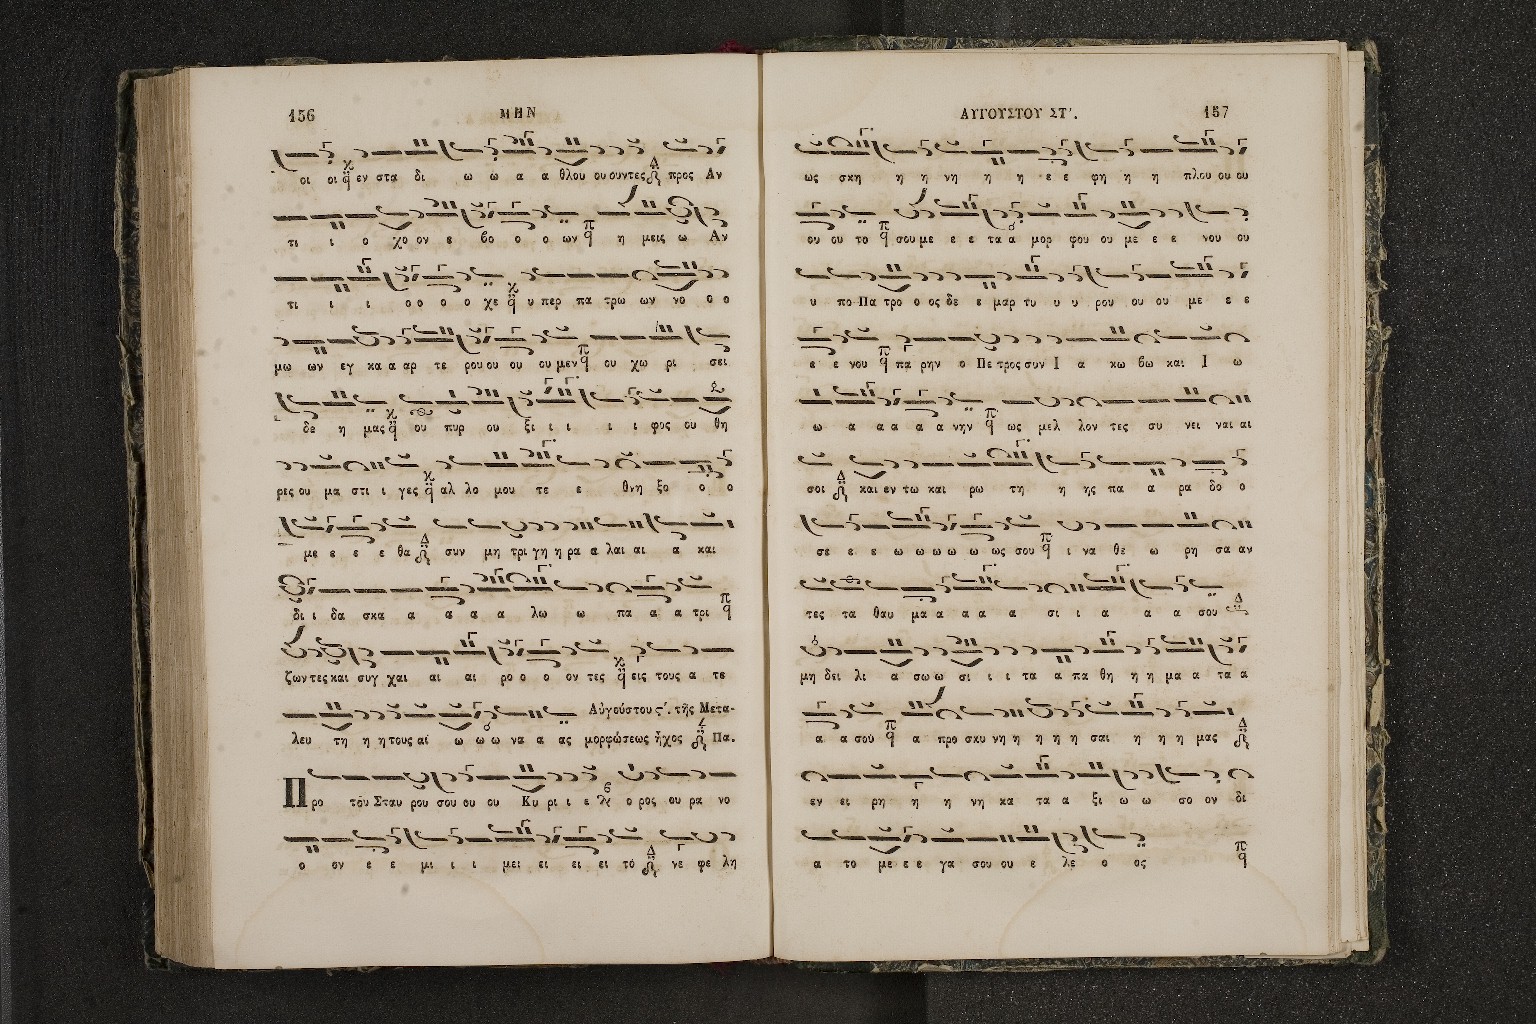 156 ΜΗΝ
οι οι εν στα δι ω ω α α θλου ου ουντες προς Αν
τι ι ο χο ον ε βο ο ο ων η μεις ω Αν
τι ι ι ο ο ο ο χε υ περ πα τρω ων νο ο ο
μω ων εγ κα α αρ τε ρου ου ου ου μεν ου χω ρι σει
δε η μας ου πυρ ου ξι ι ι ι ι φος ου θη
ρες ου μα στι ι γες αλ λο μου τε ε θνη ξο ο ο
με ε ε ε θα συν μη τρι γη η ρα α λαι αι α και
δι ι δα σκα α α α α λω ω πα α α τρι
ζων τες και συγ χαι αι αι ρο ο ο ον τες εις τους α τε
Αὐγούστου ς΄. τῆς Μετα-
λευ τη η η τους αι ω ω ω να α ας μορφώσεως ἦχος Πα.
Προ του Σταυ ρου σου ου ου Κυ ρι ι ε ο ρος ου ρα νο
ο ον ε ε μι ι ι μει ει ει ει το νε φε λη
ΑΥΓΟΥΣΤΟΥ ΣΤ΄. 157
ως σκη η η νη η η ε ε φη η η πλου ου ου
ου ου το σου με ε ε τα α μορ φου ου με ε ε νου ου
υ πο Πα τρο ο ος δε ε μαρ τυ υ υ ρου ου ου με ε ε
ε ε νου πα ρην ο Πε τρος συν Ι α κω βω και Ι ω
ω α α α α α νην ως μελ λον τες συ νει ναι αι
σοι και εν τω και ρω τη η ης πα α ρα δο ο
σε ε ε ω ω ω ω ω ως σου ι να θε ω ρη σα αν
τες τα θαυ μα α α α α σι ι α α α σου
μη δει λι α σω ω σι ι ι τα α πα θη η η μα α τα α
α α σου α προ σκυ νη η η η η σαι η η η μας
εν ει ρη η η νη κα τα α ξι ω ω σο ον δι
α το με ε ε γα σου ου ε λε ο ος